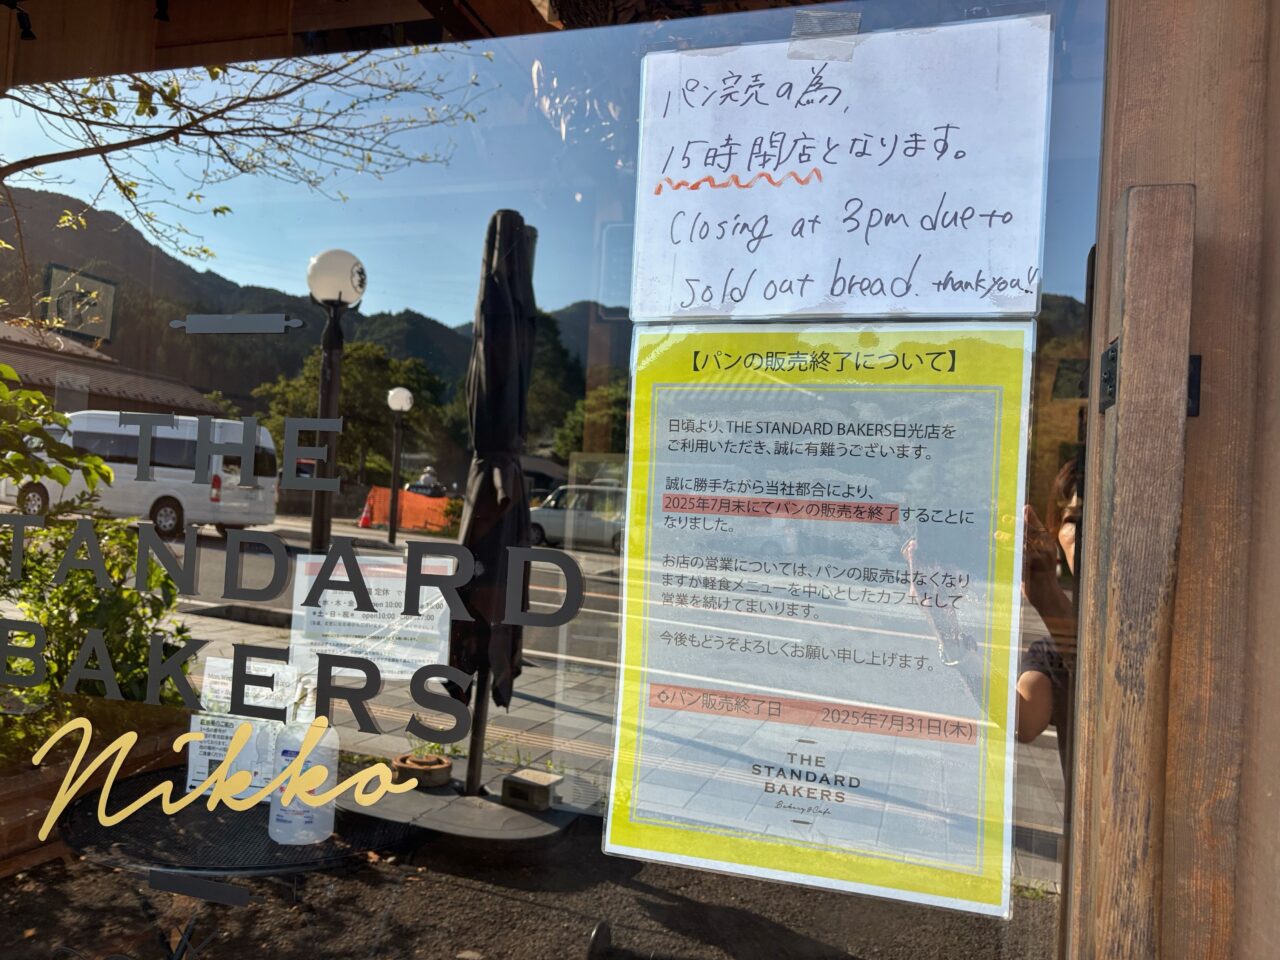 パン完売の為、
15時閉店となります。
Closing at 3pm due to
sold out bread. thank you!!
【パンの販売終了について】
日頃より、THE STANDARD BAKERS日光店を
ご利用いただき、誠に有難うございます。
誠に勝手ながら当社都合により、
2025年7月末にてパンの販売を終了することに
なりました。
お店の営業については、パンの販売はなくなり
ますが軽食メニューを中心としたカフェとして
営業を続けてまいります。
今後もどうぞよろしくお願い申し上げます。
パン販売終了日 2025年7月31日(木)
THE
STANDARD
BAKERS
Bakery & Cafe
THE
STANDARD
BAKERS
Nikko
定休
水・木・金 open 10:00
土・日・祝 open10:00